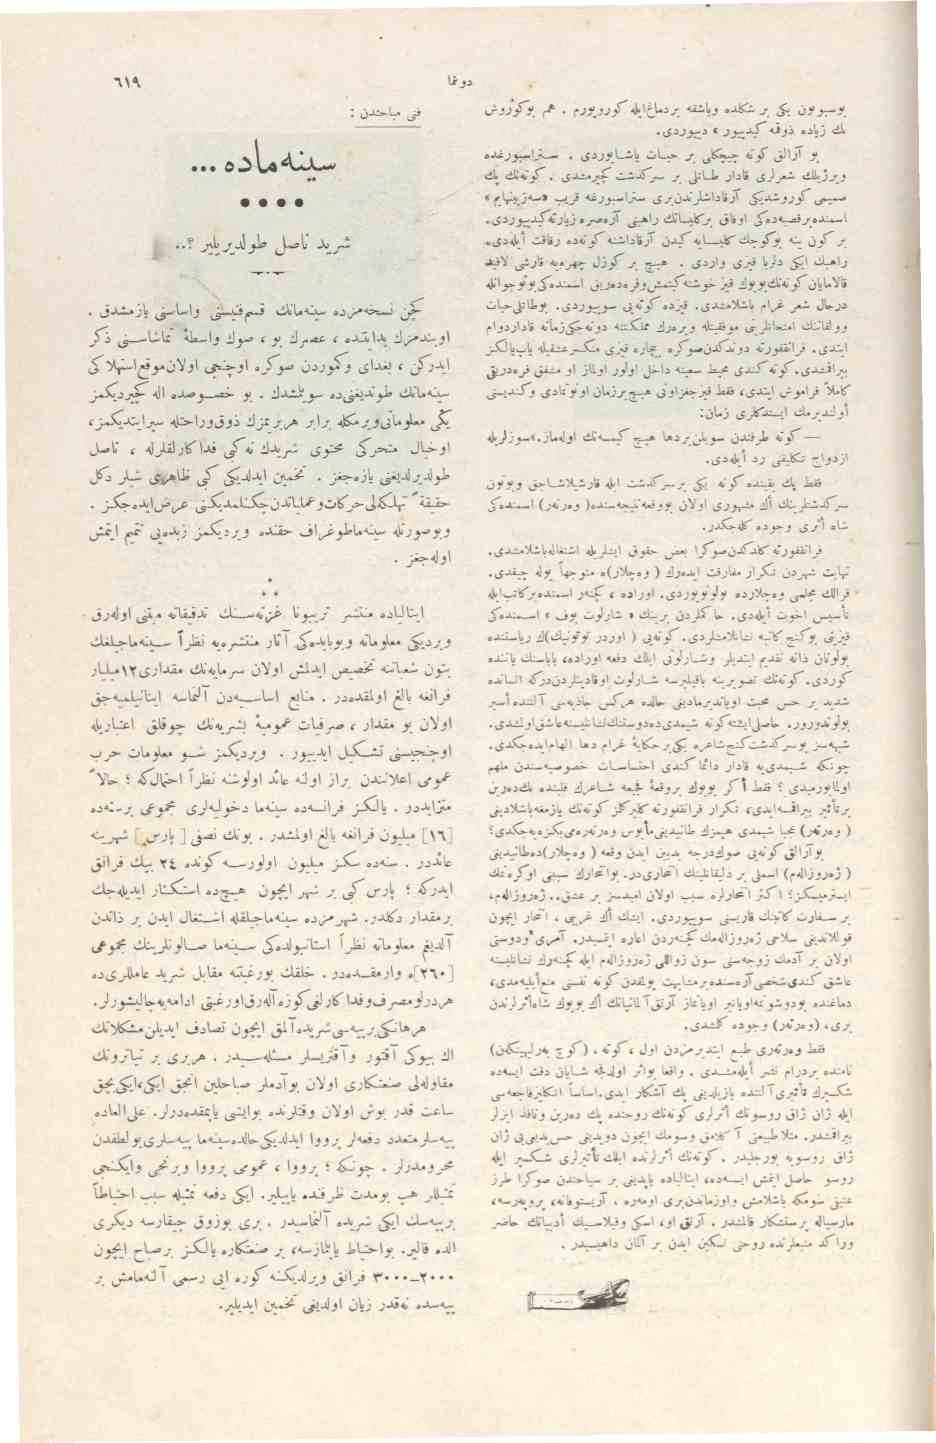 دوغا
٦١٩
بوسبوتون یکی بر شکلده وباشقه بردماغ‌ایله کورویورم . هم بوکوروش
پك زیاده ذوقمه کیدییور » دییوردی.
بو آرالق کوته چیچکلی بر حیات یاشایوردی . ستراسبورغده
ویرژیلك شعرلری قادار طاتلی بر سرکذشت کچیرمشدی . کوته‌نك پك
صمیمی کوروشدیکی آرقاداشلرندن‌بری ستراسبورغه قریب «سه‌زیینهایم»
اسمنده‌برقصبه‌ده‌کی اوفاق برکلیسانك راهبنی آره‌صره زیارته‌کیدییوردی.
بر کون ینه بوکوجك کلیسایه کیدن آرقاداشنه کوته‌ده رفاقت أیله‌دی.
راهبك ایکی دلربا قیزی واردی . هیچ بر کوزل چهره‌یه قارشی لاقید
قالامایان کوته‌نك‌بویوك قیز خوشنه‌کیتمش‌وفره‌ده‌ریق اسمنده‌کی‌بونوجوانله
درحال شعر غرام باشلامشدی. قیزده کوته‌یی سوییوردی. بوطاتلی‌حیات
وولفانك امتحانلرینی موفقیتله ویره‌رك مملکتنه دونه‌جکی‌زمانه قاداردوام
ایتدی. فرانقفورته دوندکدن‌صوکره بیچاره قیزی منکسرعشقیله یاپ‌یالکز
بیراقمشدی. کوته کندی محیط سعینه داخل اولور اولماز او مشفق فره‌دریقی
کاملاً فراموش ایتدی، فقط قیزجغزاونی هیچ‌برزمان اونوتمادی وکندیسنی
أولندیرمك ایستدکلری زمان:
— کوته طرفندن سویلن‌بردها هیچ کیمسه‌نك اوله‌ماز.»سوزلریله
ازدواج تکلیفنی رد أیله‌دی.
فقط پك یقینده کوته یکی برسرکذشت ایله قارشیلاشاجق وبوتون
سرکذشتلرینك أك مشهوری اولان بووقعه‌نتیجه‌سنده( وه‌رته‌ر) اسمنده‌کی
شاه أثری وجوده کله‌جکدر.
فرانقفورته کلدکدن‌صوکرا بعض حقوق ایشلریله اشتغاله‌باشلامشدی.
نهایت شهردن تکرار مفارقت ایده‌رك ( وه‌چلار)ه متوجهاً یوله چیقدی.
قرالك مجلسی وه‌چلارده بولونویوردی. اوراده ، کچنه‌ر اسمنده‌برکاتب‌ایله
تأسیس اخوت أیله‌دی. حاکملردن برینك « شارلوت بوف » اسمنده‌کی
قیزینی بوکنج‌کاتبه نشانلامشلردی. کوته‌یی ( اوردر توتونیك)ك ریاستنده
بولونان ذاته تقدیم ایتدیلر وشارلوتی ایلك دفعه اوراده، باباسنك یاننده
کوردی. کوته‌نك تصویرینه باقیلیرسه شارلوت اوقادینلردن‌درکه انسانده
شدید بر حس محبت اویاندیرمادینی حالده هرکس جاذبه‌سی آلتنده‌أسیر
بولوندورور. حاصلی‌ایشته‌کوته شیمدی‌ده‌دوستنك‌نشانلیسنه‌عاشق‌اولمشدی.
شبهه‌سز بوسرکذشت‌کنج‌شاعره یکی‌برحکایهٔ غرام دها الهام‌ایده‌جکدی.
چونکه شیمدی‌یه قادار دائما کندی احتساسات خصوصیه‌سندن ملهم
اولمایورمیدی ؟ فقط أکر بویوك بروقعهٔ فجیعه شاعرك قلبنده پك‌ده‌رین
برتأثیر بیراقمه‌ایدی، تکرار فرانقفورته کلیرکلمز کوته‌نك یازمغه‌باشلادینی
( وه‌رته‌ر) عجبا شیمدی هپمزك طانیدینی‌مأیوس وه‌رته‌ره‌می‌بکزه‌یه‌جکدی؟
بوآرالق کوته‌یی صوك‌درجه بدبین ایدن وقعه ( وه‌چلار)ده‌طانیدینی
( ژه‌روزاله‌م) اسملی بر دلیقانلینك انتحاری‌در. بوانتحارك سببنی اوکره‌نمك
ایسترمیسکز؟ اکثر انتحارلره سبب اولان امیدسز بر عشق..ژه‌روزاله‌م،
بر سفارت کاتبنك قاریسنی سوییوردی. ایشك أك غریبی ، انتحار ایچون
قوللاندینی سلاحی ژه‌روزاله‌مك کچنه‌ردن اعاره ایتمسیدر. آمری‌ودوستی
اولان بر آدمك زوجه‌سنی سون زواللی ژه‌روزاله‌م ایله کچنه‌رك نشانلیسنه
عاشق کندی‌شخصی‌آره‌سنده‌برمشابهت بولمقدن کوته نفسنی منع‌أیلیه‌مدی،
دماغنده بودوشونجه‌اویانیر اویانماز آرتق‌آلمانیانك أك بویوك شاه‌أثرلرندن
بری، (وه‌رته‌ر) وجوده کلمشدی.
فقط وه‌رته‌ری طبع ایتدیرمزدن اول ، کوته ، (کوچ به‌رلیهینکه‌ن)
نامنده بردرام نشر أیله‌مشدی . واقعا بواثر اولدقجه شایان دقت ایسه‌ده
شکسپرك تأثیری‌آلتنده یازیلدینی پك آشکار ایدی.اساساً انکلیزفاجعه‌سی
ایله ژان ژاق روسونك أثرلری کوته‌نك روحنده پك ده‌رین ونافذ ایزلر
بیراقمشدر. مثلا طبیعتی آکلامق وسومك ایچون دویدینی حس‌بدیعی‌یی ژان
ژاق روسویه بورجلیدر. کوته‌نك أثرلرنده ایلك تأثیرلری شکسپر ایله
روسو حاصل ایتمش ایسه‌ده، ایتالیاده یاپدینی بر سیاحتدن صوکرا طرز
عتیق سومکه باشلامش واوزماندن‌بری اومه‌ره ، آریستوفانه، پروپه‌رسه،
مارسیاله پرستشکار قالمشدر. آرتق او، اسکی وقلاسیك أدبیاتك حاضر
وراکد منبعلرنده روحی تسکین ایدن بر آلمان داهیسیدر .
فنی مباحثدن :
سینه‌ماده ...
شرید ناصل طولدیریلیر ؟..
کچن نسخه‌مزده سینه‌مانك قسم‌فنیسنی واساسنی یازمشدق .
اوبندمزك بدایتنده ، عصرك بو ، صوك واسطهٔ تماشاسنی ذکر
ایدرکن ، بغدای وکموردن سوکره اوچنجی اولان‌موقع‌استهلاکی
سینه‌مانك طوتدیغنی‌ده سویلمشدك . بو خصوصده اله کچیردیکمز
یکی معلوماتی‌ویرمکله برابر هربریمزك ذوق‌وراحتله سیرایتدیکمز،
اوخیال متحرکی محتوی شریدك نه کبی فداکارلقلرله ، ناصل
طولدیرلدیغنی یازه‌جغز . تخمین ایدلدیکی کبی ظاهری شیلر دکل
حقیقةً تهلکه‌لی حرکات‌و عملیاتدن‌چکنلمدیکنی عرض‌ایده‌جکز .
وبوصورتله سینه‌ماطوغراف حقنده ویردیکمز زبده‌یی تتمیم ایتمش
اوله‌جغز .
ایتالیاده منتشر تریبونا غزته‌سنك تدقیقاته مبتنی اوله‌رق
ویردیکی معلوماته وبوبابده‌کی آثار منتشره‌یه نظراً سینه‌ماجیلغك
بتون شعباتنه تخصیص ایدلمش اولان سرمایه‌نك مقداری١٢میلیار
فرانغه بالغ اولمقده‌در . منابع اساسیه‌دن آلنماسه اینانیلمیه‌جق
اولان بو مقدار ، صرفیات عمومیهٔ بشریه‌نك چوقلق اعتباریله
اوچنجیسنی تشکیل ایدییور . ویردیکمز شو معلومات حرب
عمومی اعلانندن براز اولنه عائد اولوشنه نظراً احتمال‌که ؛ حالاً
متزایددر . یالکز فرانسه‌ده سینه‌ما دخولیه‌لری مجموعی برسنه‌ده
[١٦] میلیون فرانغه بالغ اولمشدر . بونك نصفی [ پارس ] شهرینه
عائددر . سنه‌ده سکز میلیون اولورسه کونده ٢٤ بیك فرانق
ایدرکه ؛ پارس کبی بر شهر ایچون هیچ‌ده استکثار ایدیله‌جك
برمقدار دکلدر. شهرمزده سینه‌ماجیلقله اشتغال ایدن بر ذاتدن
آلدیغم معلوماته نظراً استانبولده‌کی سینه‌ما صالونلرینك مجموعی
[٢٦٠]ه وارمقده‌در. خلقك بورغبتنه مقابل شرید عامللری‌ده
هردرلومصرف‌وفداکارلغی‌کوزه‌آله‌رق‌اورغبتی ادامه‌یه‌چالیشورلر.
هرهانکی‌برپیه‌سی‌شریده‌آلمق ایچون تصادف ایدیلن‌مشکلاتك
اك بیوکی آقتور وآقتریسلر مسئله‌سیدر . هربری بر تیاترونك
مقاوله‌لی صنعتکاری اولان بوآدملر صباحلین آنجق ایکی،ایکی‌بچق
ساعت قدر بوش اولان وقتلرنده بوایشی یاپمقده‌درلر. علی‌العاده
پیه‌سلرمتعدد دفعه‌لر پرووا ایدلدیکی‌حالده‌سینه‌ما پیه‌سلری‌بولطفدن
محرومدرلر. چونکه ؛ پرووا ، عمومی پرووا وبرنجی وایکنجی
تمثیللر هپ بومدت ظرفنده یاپیلیر. ایکی دفعه تمثیله سبب احتیاطاً
برپیه‌سك ایکی شریده آلنماسیدر . بری بوزوق چیقارسه دیکری
الده قالیر. بواحتیاط یاپلمازسه، بر صنعتکاره یالکز برصباح ایچون
٢٠٠٠–٣٠٠٠ فرانق ویرلدیکنه کوره ایی رسمی آلنه‌مامش بر
پیه‌سده نه‌قدر زیان اولدیغی تخمین ایدیلیر.